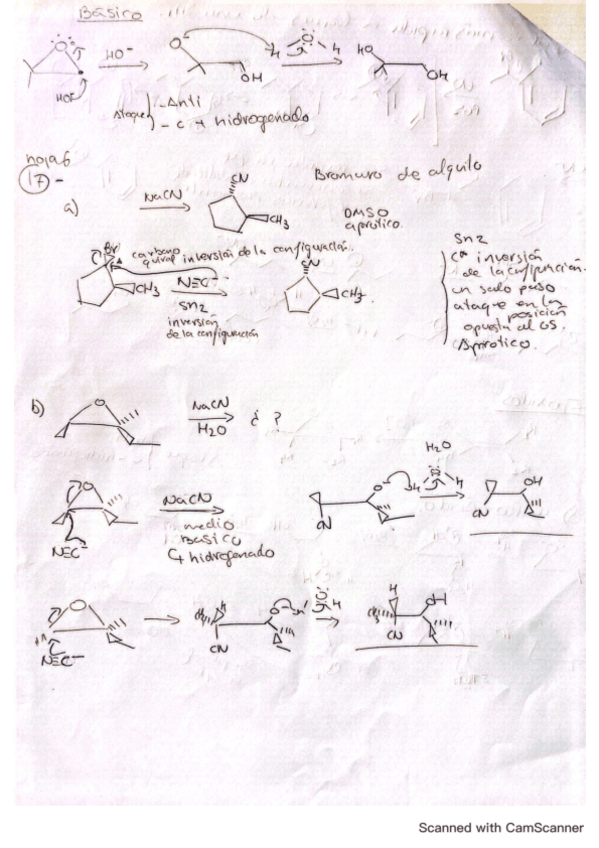 Básico
HO⁻
HO⁻
O⁻
OH
H
O
H
HO
OH
Ataque
- Anti
- C + hidrogenado
hoja 6
17 -
Bromuro de alquilo
a)
NaCN
CN
CH₃
DMSO
aprótico.
Br
carbono
quiral inversión de la configuración.
CH₃
N≡C⁻
Sn2
inversión
de la configuración
CN
CH₃
Sn2
C* inversión
de la configuración.
un solo paso
ataque en la
posición
opuesta al GS.
Aprótico.
b)
O
NaCN
H₂O
¿ ?
O
N≡C⁻
NaCN
medio
básico
C + hidrogenado
O⁻
CN
H₂O
H
O
H
OH
CN
O
H
N≡C⁻
CH₃
H
CN
O⁻
H
O
H
H
CH₃
CN
OH
Scanned with CamScanner